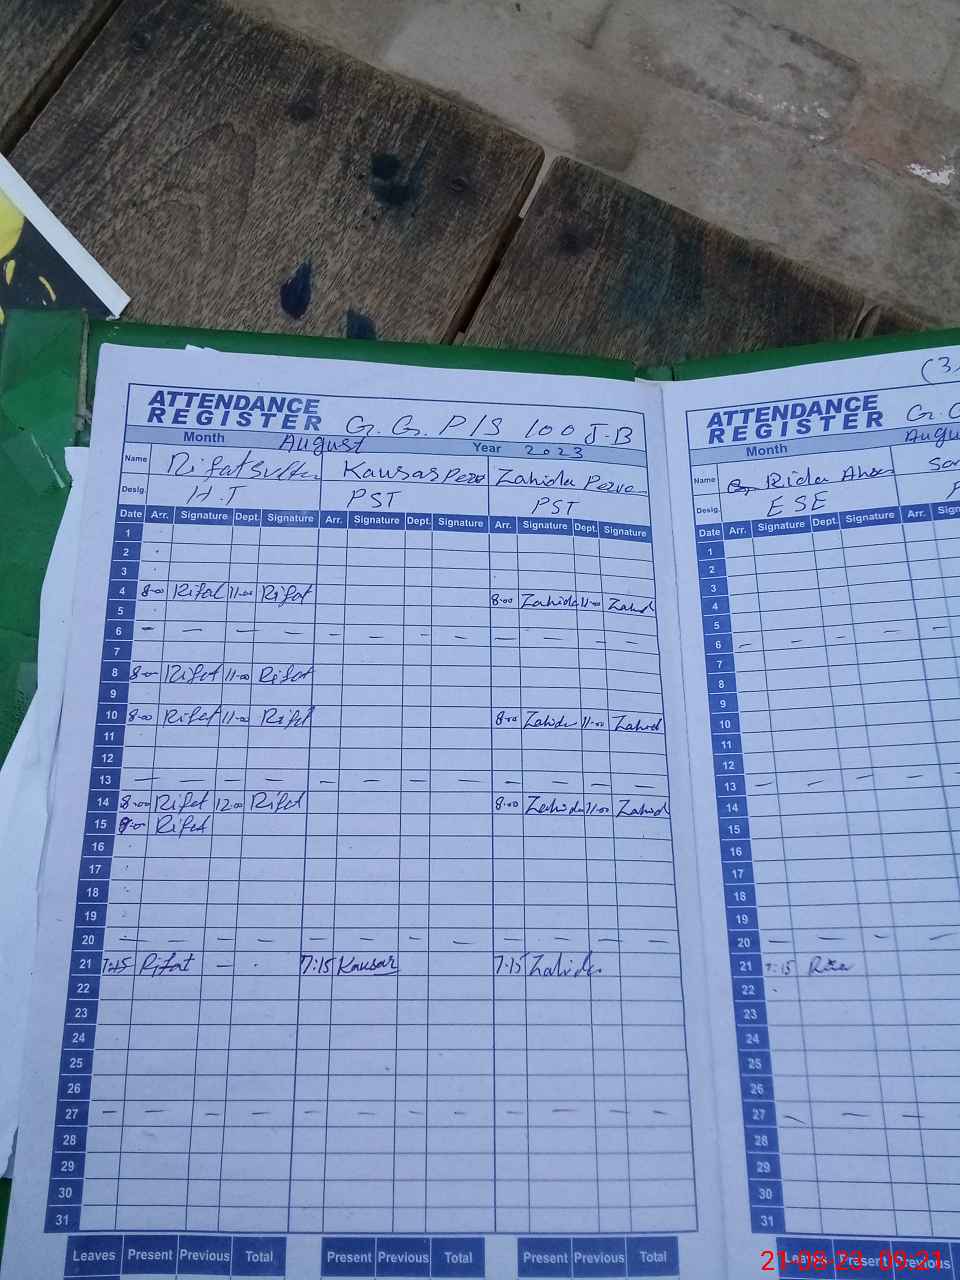 (3
ATTENDANCE REGISTER G.G. P/S 100 J-B
Month August Year 2023
Name Rifat Sultan Kausar Perv Zahida Perve
Desig. H.T PST PST
Date Arr. Signature Dept. Signature Arr. Signature Dept. Signature Arr. Signature Dept. Signature
1
2
3
4 8-00 Rifat 11-00 Rifat 8-00 Zahida 11-00 Zahid
5
6 — — — — — — — — — — — —
7
8 8-00 Rifat 11-00 Rifat
9
10 8-00 Rifat 11-00 Rifat 8-00 Zahida 11-00 Zahid
11
12
13 — — — — — — — — — — — —
14 8-00 Rifat 12-00 Rifat 8-00 Zahida 11-00 Zahid
15 8-00 Rifat
16
17
18
19
20 — — — — — — — — — — — —
21 7:15 Rifat — 7:15 Kausar 7:15 Zahida
22
23
24
25
26
27 — — — — — — — — — — — —
28
29
30
31
Leaves Present Previous Total Present Previous Total Present Previous Total
ATTENDANCE REGISTER G.G
Month Augu
Name Rida Ahsa
Desig. ESE
Date Arr. Signature Dept. Signature Arr. Sign
1
2
3
4
5
6 — — — — —
7
8
9
10
11
12
13 — — — — —
14
15
16
17
18
19
20 — — — — —
21 7:15 Rida
22
23
24
25
26
27 — — —
28
29
30
31
Leaves Present Previous
21-08-23 09:21